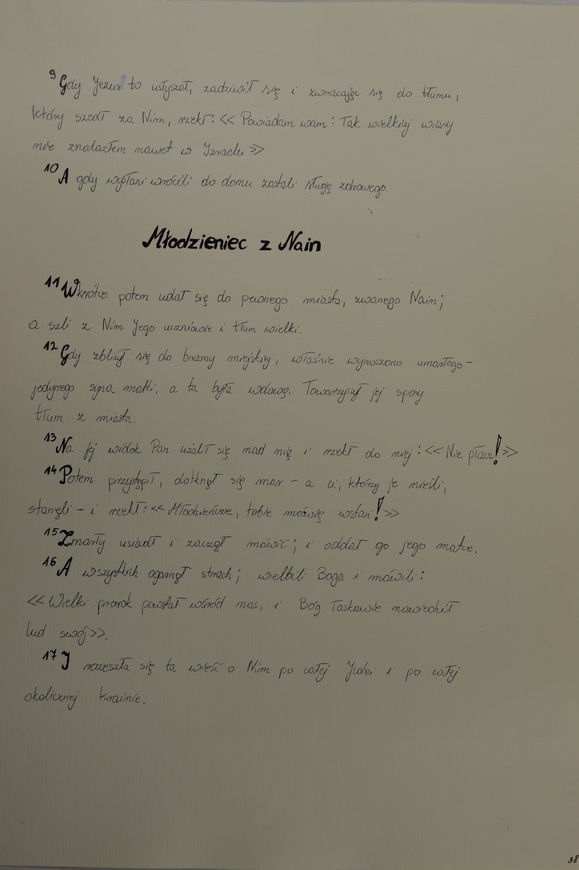 9 Gdy Jezus to usłyszał, zadziwił się i zwracając się do tłumu,
który szedł za Nim, rzekł: << Powiadam wam: Tak wielkiej wiary
nie znalazłem nawet w Izraelu >>
10 A gdy wysłani wrócili do domu zastali sługę zdrowego.
Młodzieniec z Nain
11 Wkrótce potem udał się do pewnego miasta, zwanego Nain;
a szli z Nim Jego uczniowie i tłum wielki.
12 Gdy zbliżył się do bramy miejskiej, właśnie wynoszono umarłego -
jedynego syna matki, a ta była wdową. Towarzyszył jej spory
tłum z miasta.
13 Na jej widok Pan użalił się nad nią i rzekł do niej: << Nie płacz! >>
14 Potem przystąpił, dotknął się mar - a ci, którzy je nieśli,
stanęli - i rzekł: << Młodzieńcze, tobie mówię wstań! >>
15 Zmarły usiadł i zaczął mówić; i oddał go jego matce.
16 A wszystkich ogarnął strach; wielbili Boga i mówili:
<< Wielki prorok powstał wśród nas, i Bóg łaskawie nawiedził
lud swój >>.
17 I rozeszła się ta wieść o Nim po całej Judei i po całej
okolicznej krainie.
38